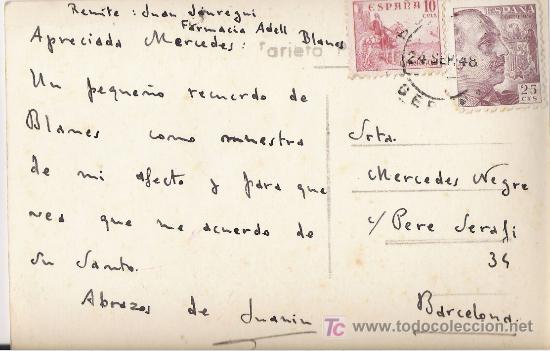 Remite: Juan Jauregui
Farmacia Adell Blanes
Apreciada Mercedes:
Tarjeta
Un pequeño recuerdo de
Blanes como muestra
de mi afecto y para que
vea que me acuerdo de
su Santo.
Abrazos de Juanin
ESPAÑA 10
CTS
ESPAÑA
25
CTS
24 SEP. 48
Srta.
Mercedes Negre
c/ Pere Serafi
34
Barcelona.
TC todocoleccion
www.todocoleccion.net